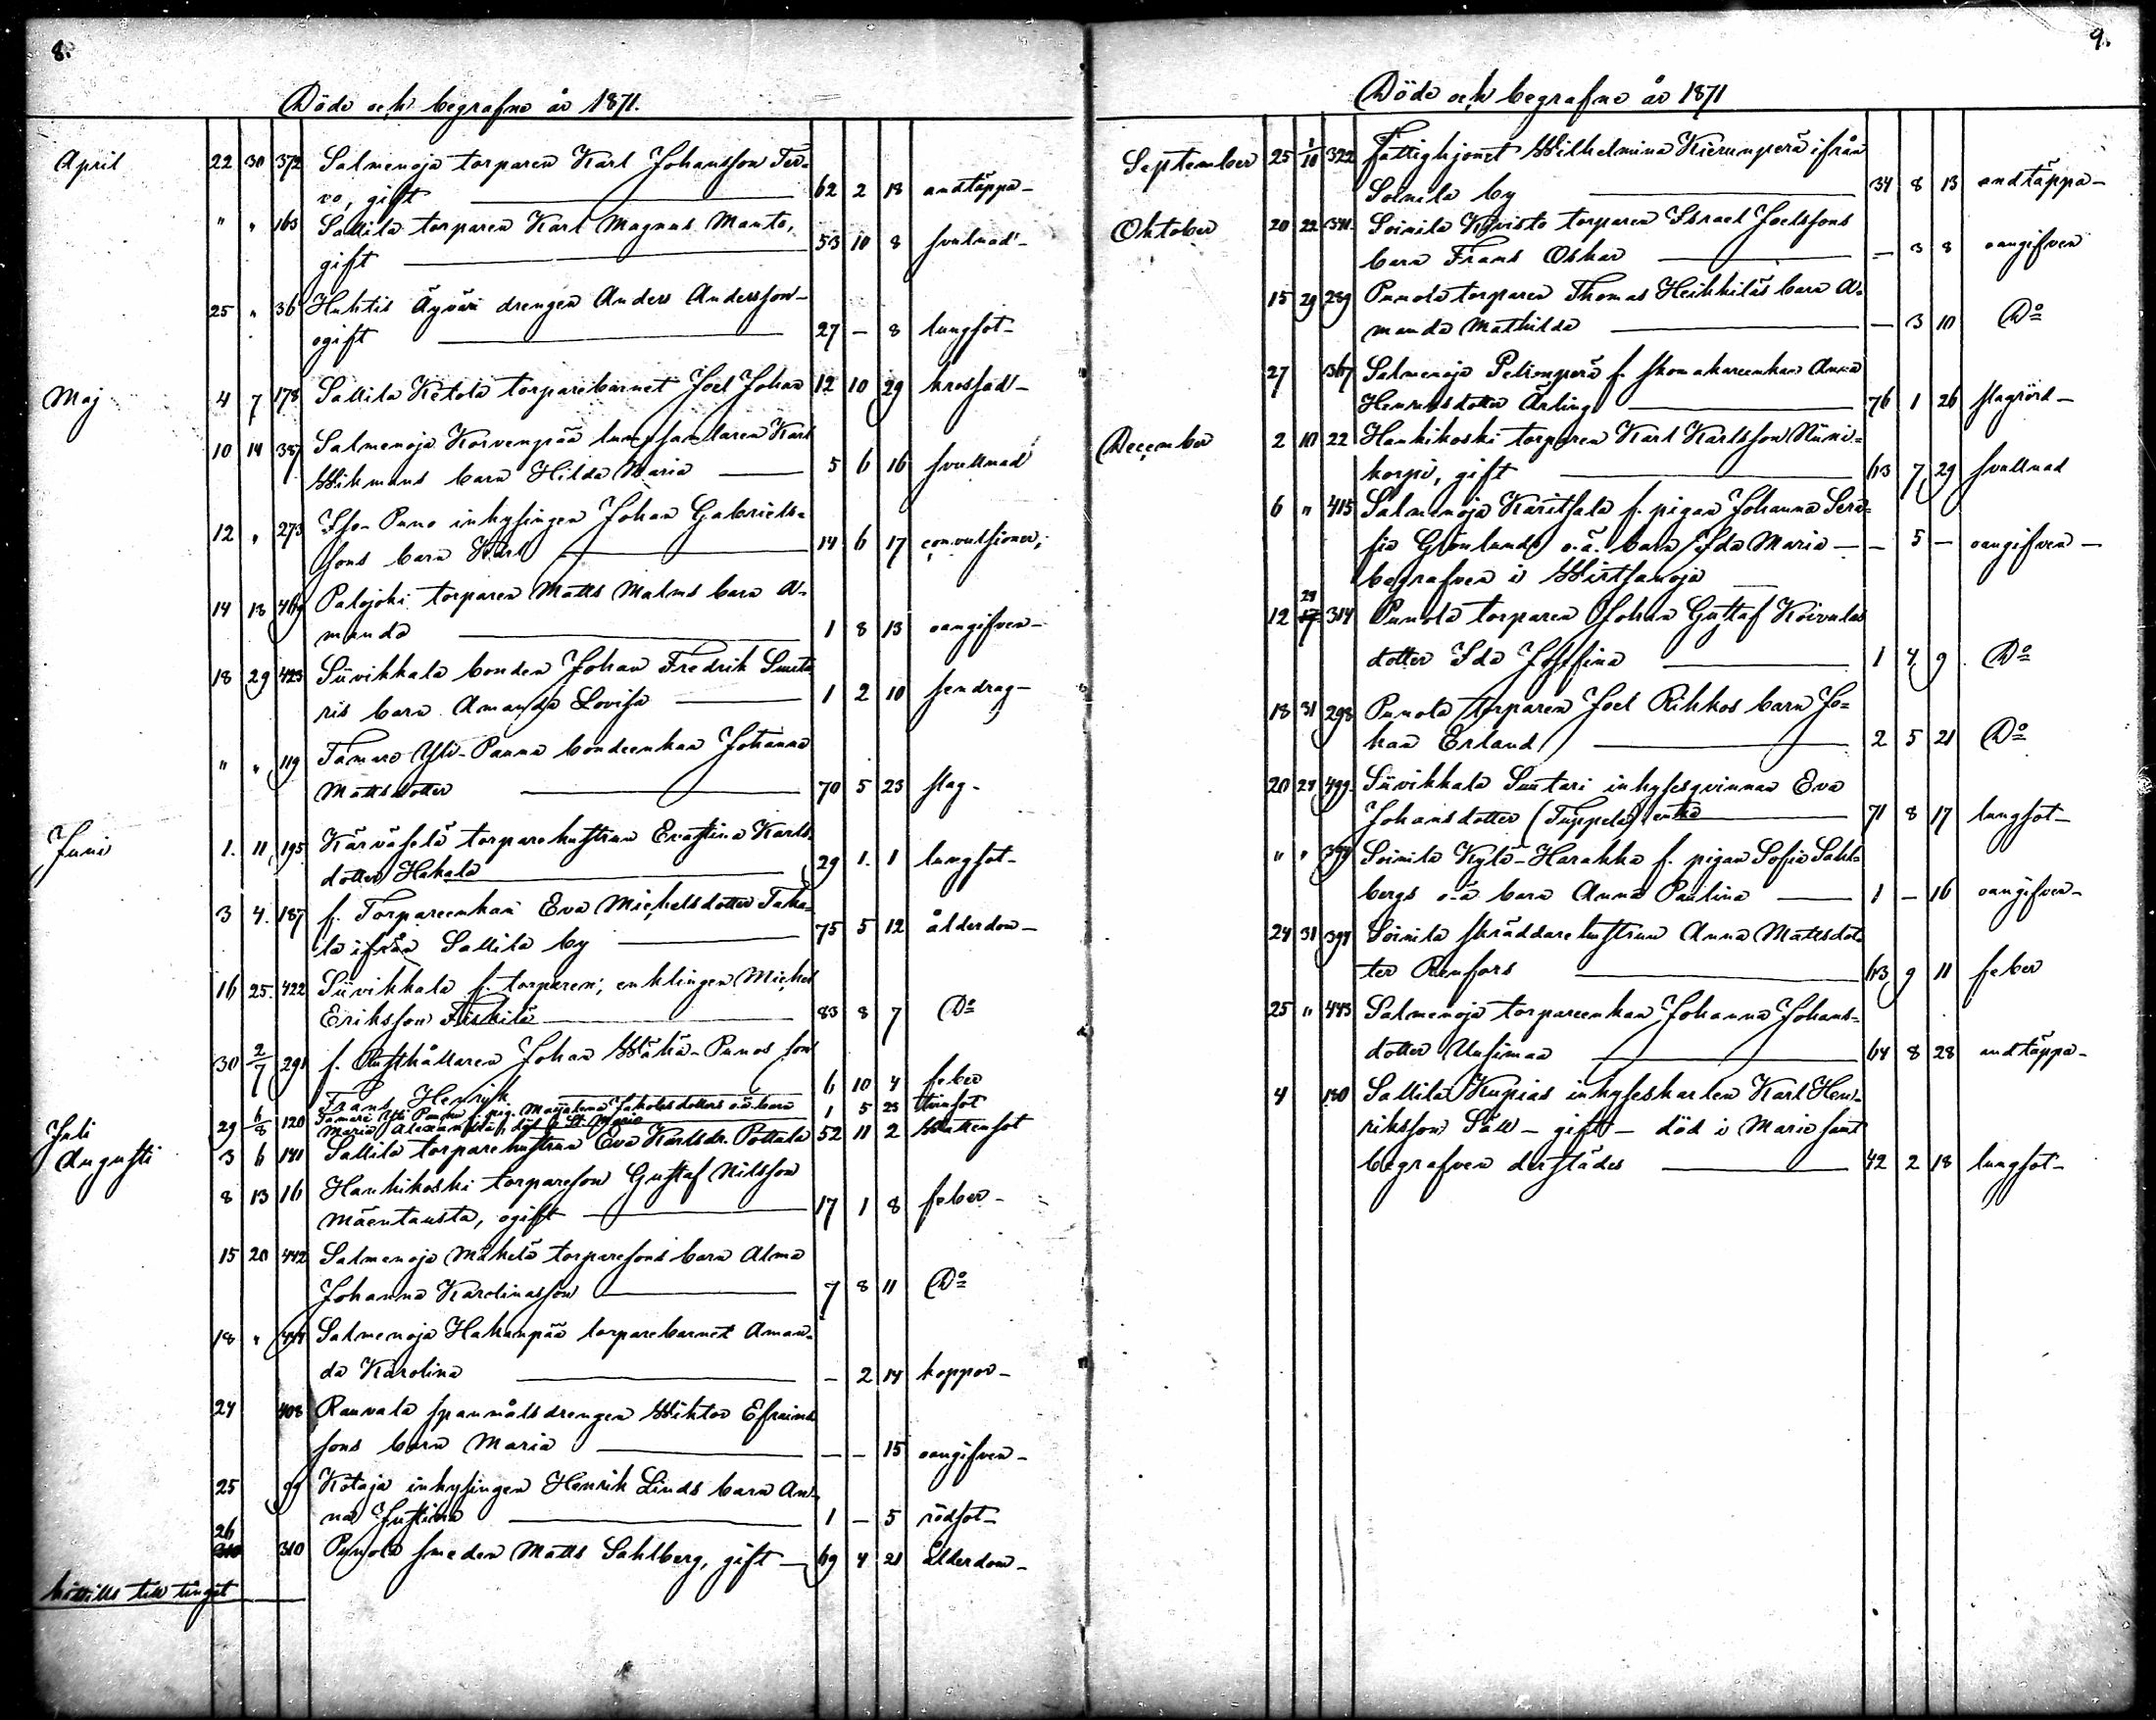 8.
Döde och begrafne år 1871.
April 22 30 372 Salmenoja torparen Karl Johansson Ter-
vo, gift 62 2 18 andtäppa
" " 163 Sallila torparen Karl Magnus Manto,
gift 53 10 8 svulnad
25 " 36 Huhtis Äyväri drengen Anders Andersson
ogift 27 - 8 lungsot
Maj 4 7 178 Sallila Ketola torparebarnet Joel Johan 12 10 29 krossad
10 14 387 Salmenoja Korvenpää lumpsamlaren Karl
Wikmans barn Hilda Maria 5 6 16 svullnad
12 " 273 Iso-Puno inhysingen Johan Gabriels-
sons barn Karl 14 6 17 convulsioner
14 18 469 Palojoki torparen Matts Malms barn A-
manda 1 8 13 oangifven
18 29 423 Siivikkala bonden Johan Fredrik Suuta
ris barn Amanda Lovisa 1 2 10 sendrag
" " 119 Tamare Yli-Panna bondeenkan Johanna
Mattsdotter 70 5 23 slag
Juni 1. 11 195 Kärväselä torparehustrun Evastina Karls-
dotter Hakala 29 1. 1 lungsot
3 4. 187 f. Torpareenkan Eva Michelsdotter Taka-
la ifrån Sallila by 75 5 12 ålderdom
16 25. 422 Siivikkala f. torparen, enklingen Michel
Eriksson Fiskilä 83 8 7 Do
30 2/7 291 f. Rusthållaren Johan Wähä-Punos son
Frans Henrik 6 10 4 feber
Juli 29 6/8 120 Tamare Yli Panna f. pig. Maijalena Jakobsdotters oä barn 1 5 23 tvinsot
Maria Alexandra, död i St. Marie
Augusti 3 6 141 Sallila torparehustrun Eva Karlsdr. Pottala 52 11 2 Wattensot
8 13 16 Hankikoski torpareson Gustaf Nilsson
Mäentausta, ogift 17 1 8 feber
15 20 442 Salmenoja Mäkelä torparesons barn Alma
Johanna Karolinasson 7 8 11 Do
18 " Salmenoja Hakanpää torparebarnet Aman-
da Karolina - 2 14 koppor
24 408 Rauvala spannmålsdrengen Wiktor Efraims
sons barn Maria - - 15 oangifven
25 99 Kotaja inhysingen Henrik Linds barn An-
na Justina 1 - 5 rödsot
26 310 Punola smeden Matts Sahlberg, gift 69 4 21 ålderdom
hittills till tinget
9.
Döde och begrafne år 1871
September 25 1/10 322 Fattighjonet Wilhelmina Kierumperä ifrån
Soinila by 34 8 13 andtäppa
Oktober 20 22 341. Soinila Kyvisto torparen Israel Joelssons
barn Frans Oskar - 3 8 oangifven
15 29 289 Punola torparen Thomas Heikkiläs barn A-
manda Mathilda - 3 10 Do
27 367 Salmenoja Pelionperä f. skomakareenkan Anna
Henriksdotter Ärling 76 1 26 slagrörd
December 2 10 22 Hankikoski torparen Karl Karlsson Niini-
korpi, gift 63 7 29 svullnad
6 " 415 Salmenoja Karitsala f. pigan Johanna Sera-
fia Grönlunds o.ä. barn Ida Maria - 5 - oangifven
begrafven i Wirtsanoja
12 24 314 Punola torparen Johan Gustaf Koivulas
dotter Ida Josefina 1 4 9 Do
18 31 298 Punola torparen Joel Rikkos barn Jo-
han Erland 2 5 21 Do
20 24 499. Siivikkala Suutari inhysesqvinnan Eva
Johansdotter (Tuppela) enka 71 8 17 lungsot
" " 394 Soinila Kylä-Harakka f. pigan Sofia Sahl-
bergs o.ä barn Anna Paulina 1 - 16 oangifven
24 31 394 Soinila skräddarehustrun Anna Mattsdot-
ter Renfors 63 9 11 feber
25 " 443 Salmenoja torpareenkan Johanna Johans-
dotter Uusimaa 64 8 28 andtäppa
4 180 Sallila Kupias inhyseskarlen Karl Hen-
riksson Säll - gift - död i Marie samt
begrafven derstädes 42 2 18 lungsot